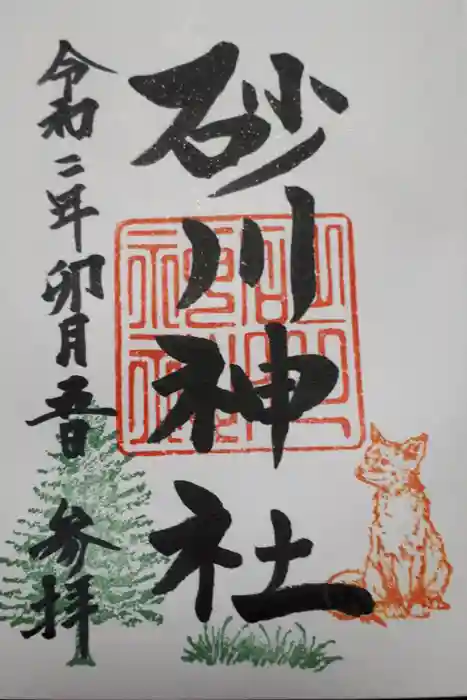 砂川神社
令和二年卯月五日 参拝